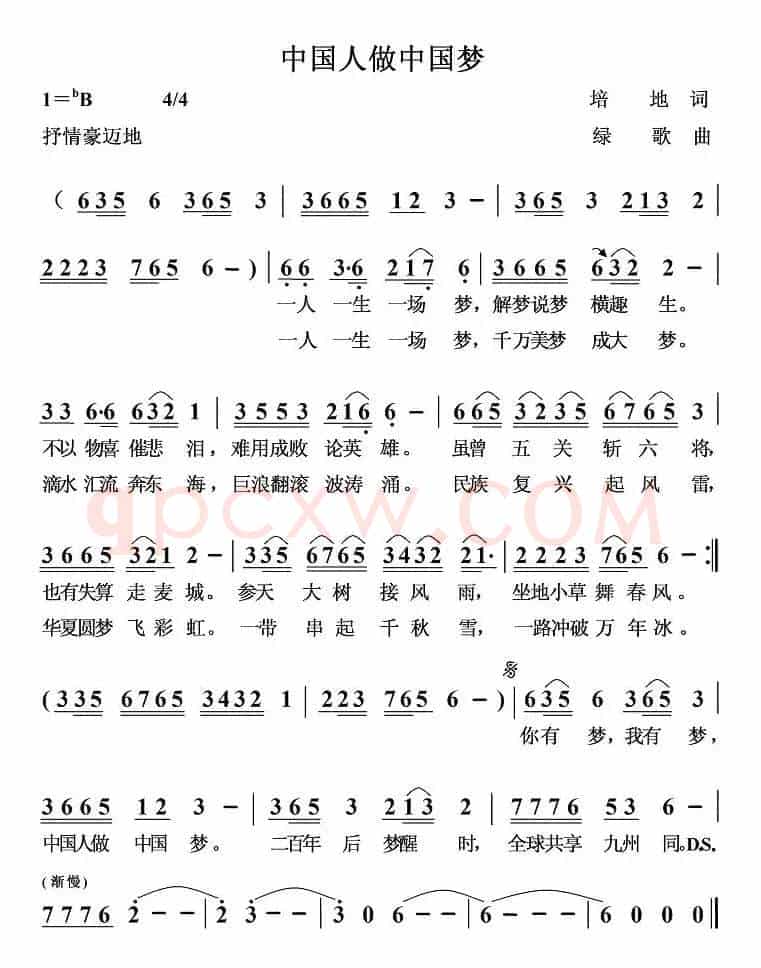 中国人做中国梦
1=ᵇB 4/4 培 地 词
抒情豪迈地 绿 歌 曲
( 6 3 5 6 3 6 5 3 | 3 6 6 5 1 2 3 - | 3 6 5 3 2 1 3 2 |
2 2 2 3 7 6 5 6 - ) | 6 6 3·6 2 1 7 6 | 3 6 6 5 6 3 2 2 - |
一人 一生 一场 梦，解梦说梦 横趣 生。
一人 一生 一场 梦，千万美梦 成大 梦。
3 3 6·6 6 3 2 1 | 3 5 5 3 2 1 6 6 - | 6 6 5 3 2 3 5 6 7 6 5 3 |
不以 物喜 催悲 泪，难用成败 论英 雄。 虽曾 五 关 斩 六 将，
滴水 汇流 奔东 海，巨浪翻滚 波涛 涌。 民族 复 兴 起 风 雷，
qpcxw.COM
3 6 6 5 3 2 1 2 - | 3 3 5 6 7 6 5 3 4 3 2 2 1· | 2 2 2 3 7 6 5 6 - :||
也有失算 走麦 城。参天 大 树 接 风 雨，坐地小草 舞 春 风。
华夏圆梦 飞彩 虹。一带 串 起 千 秋 雪，一路冲破 万 年 冰。
( 3 3 5 6 7 6 5 3 4 3 2 1 | 2 2 3 7 6 5 6 - ) | 6 3 5 6 3 6 5 3 |
你有 梦，我有 梦，
3 6 6 5 1 2 3 - | 3 6 5 3 2 1 3 2 | 7 7 7 6 5 3 6 - |
中国人做 中国 梦。 二百年 后 梦醒 时， 全球共享 九州 同。D.S.
(渐慢)
7 7 7 6 2 - - | 2 3 - - | 3 0 0 6 - - | 6 - - - | 6 0 0 0 ||